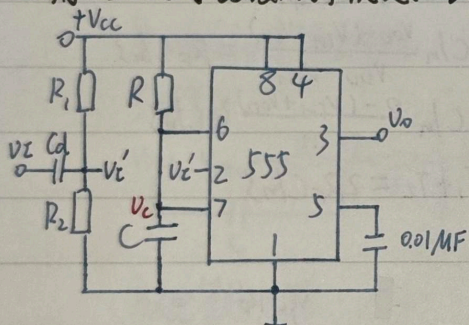 +Vcc
R₁
R
8 4
6
3
V₀
Vɪ
Cd
Vɪ'
Vɪ'
2
555
R₂
Vc
7
5
C
1
0.01MF